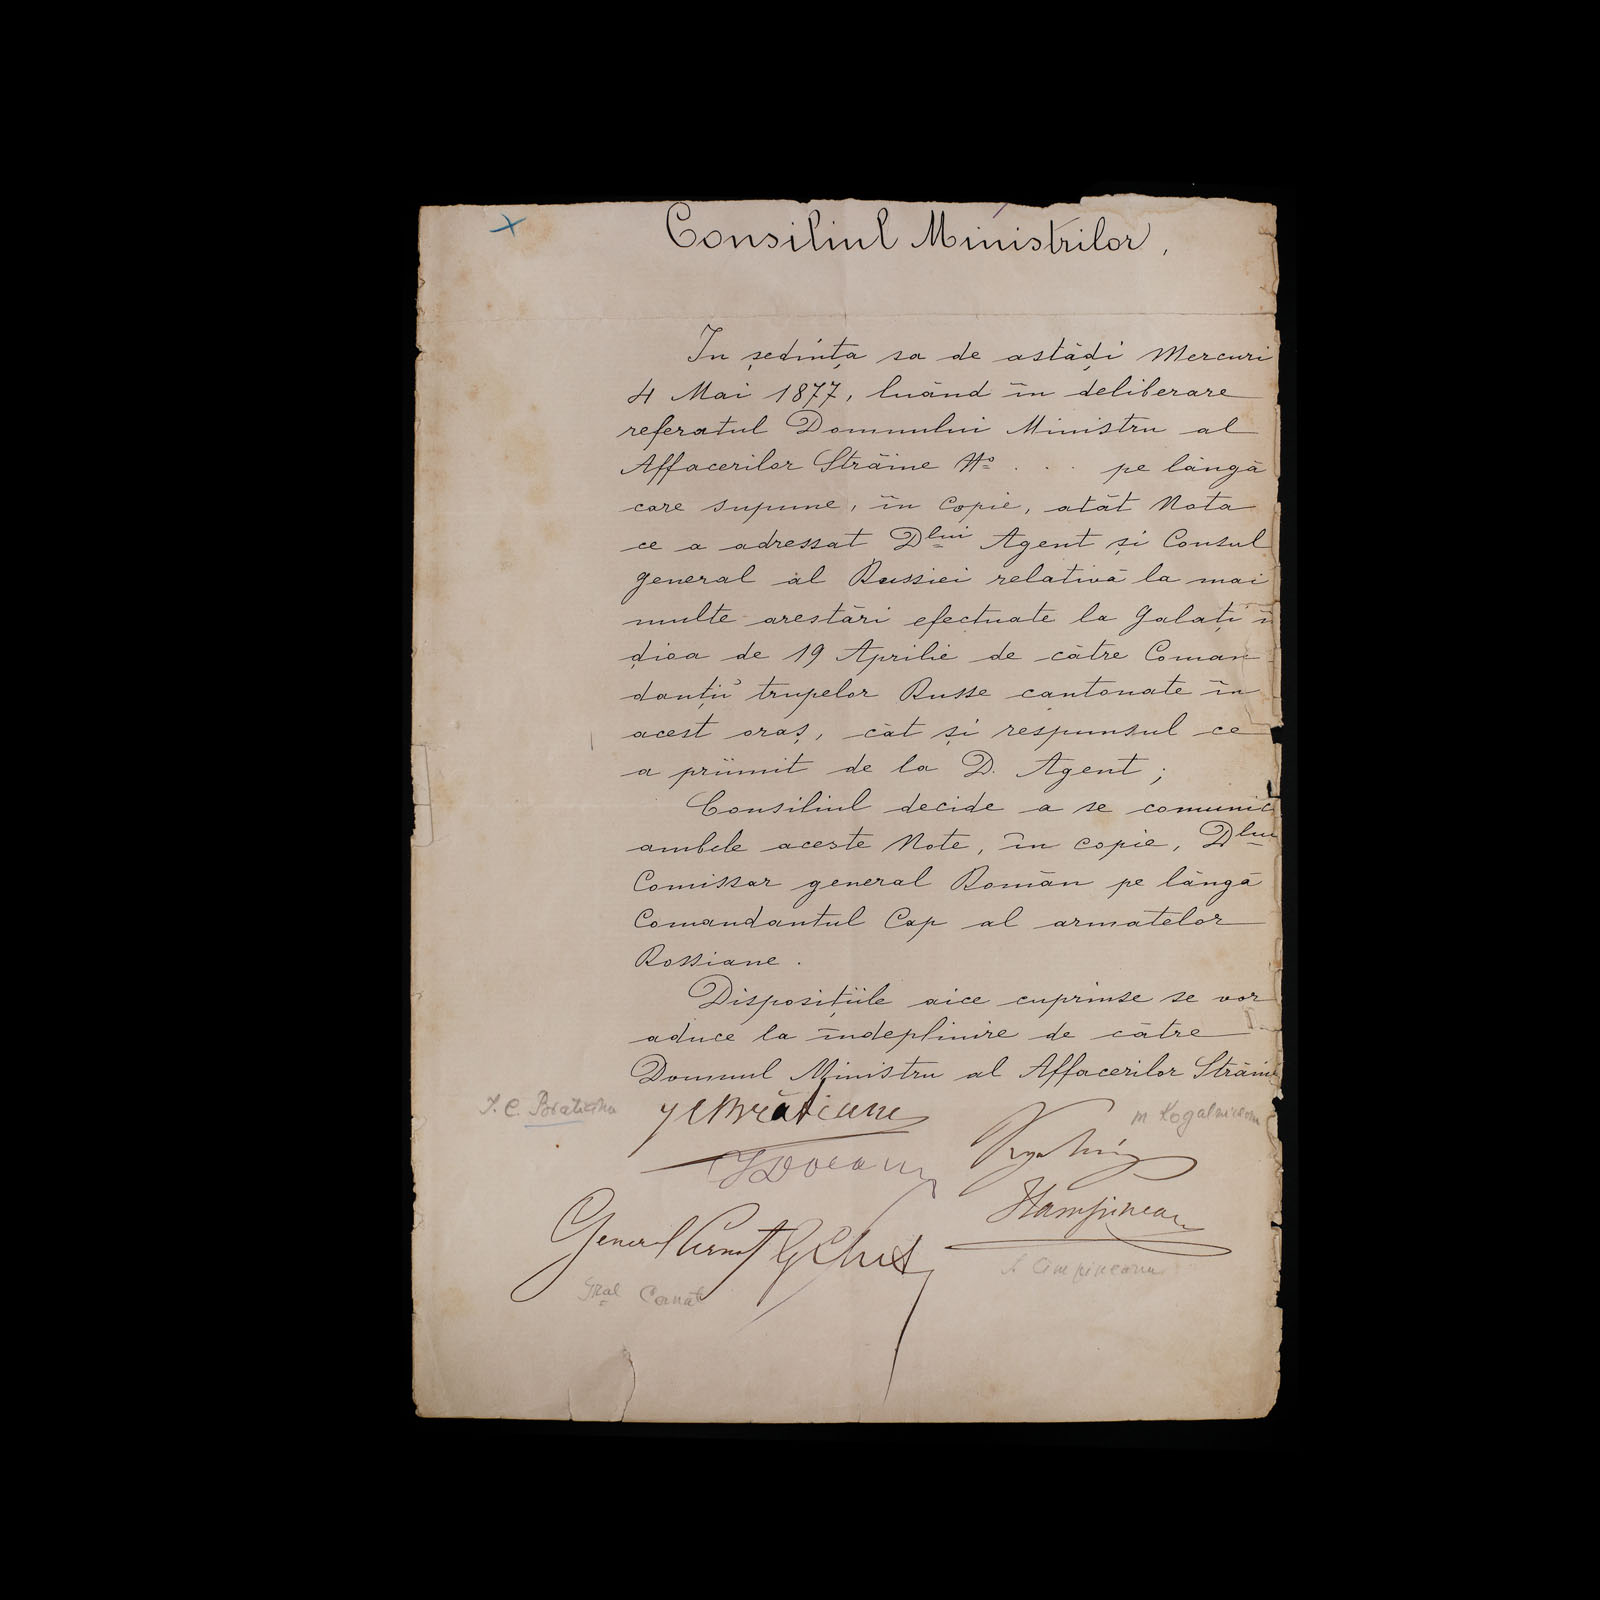 Consiliul Ministrilor,
In ședința sa de astăḍi Mercuri
4 Mai 1877, luând în deliberare
referatul Domnului Ministru al
Affacerilor Străine No . . . pe lângă
care supune, în copie, atât Nota
ce a adressat Dlui Agent și Consul
general al Russiei relativă la mai
multe arestări efectuate la Galați în
ḍioa de 19 Aprilie de către Coman
danțiĭ trupelor Russe cantonate în
acest oraș, cât și respunsul ce
a priimit de la D. Agent;
Consiliul decide a se comunic
ambele aceste Note, în copie, Dlui
Comissar general Român pe lângă
Comandantul Cap al armatelor
Rossiane.
Disposițiile aice cuprinse se vor
aduce la îndeplinire de către
Domnul Ministru al Affacerilor Străine
I. C. Bratianu
I C Brătianu
M Kogalniceanu
General Cernat
I Campineanu
I. Cimpineanu
Gral Cernat